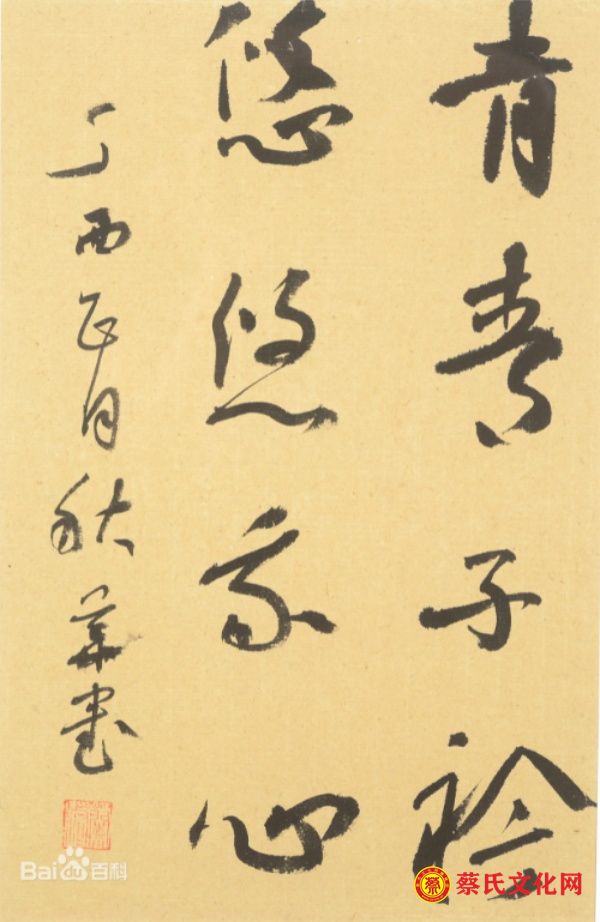 青青子衿
悠悠我心
丁酉正月秋華書
Bai 百科
蔡 蔡氏文化网